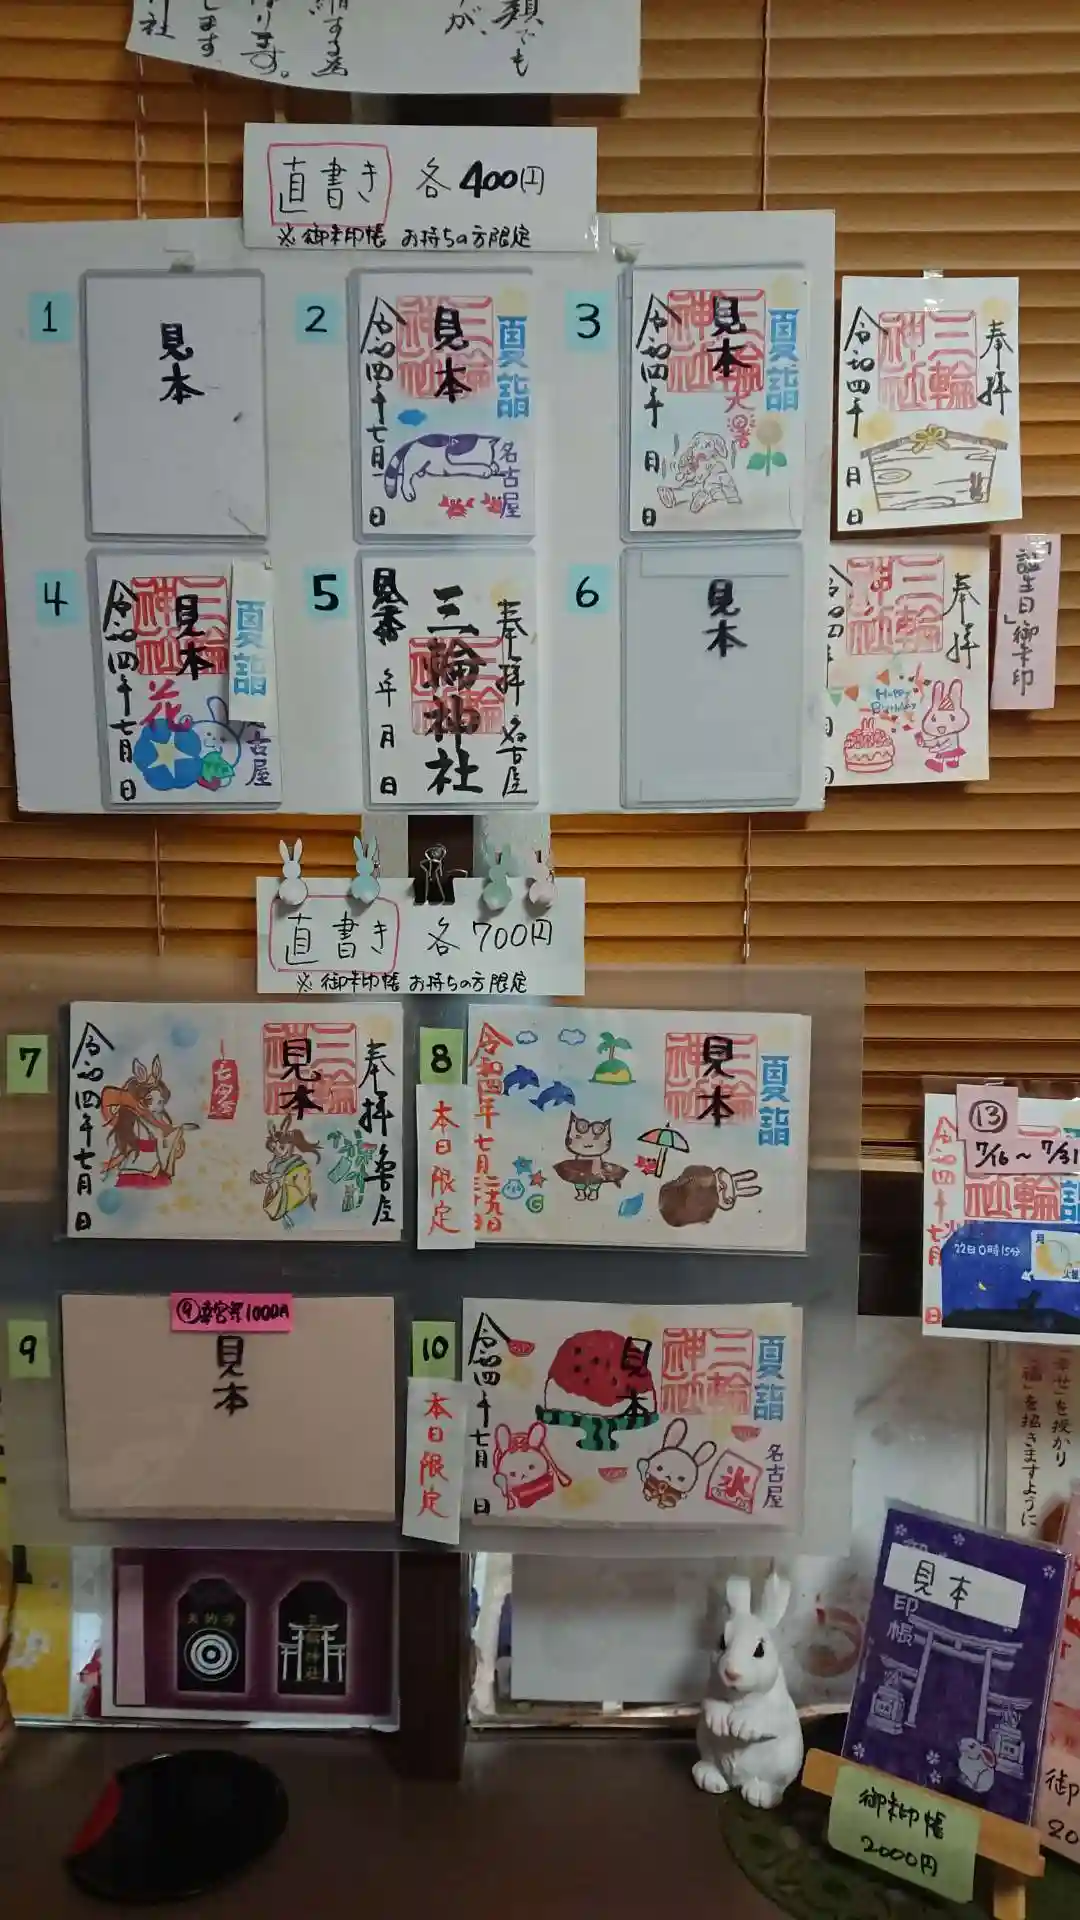 直書き 各400円
※御朱印帳 お持ちの方限定
1
見本
2
夏詣
三輪神社
見本
令和四年七月 日
名古屋
3
夏詣
三輪神社
見本
大暑
令和四年 月 日
奉拝
三輪神社
令和四年 月 日
4
夏詣
三輪神社
見本
花
令和四年七月 日
古屋
5
奉拝 名古屋
三輪神社
見本
年 月 日
6
見本
奉拝
三輪神社
Happy Birthday
「誕生日」御朱印
直書き 各700円
※御朱印帳 お持ちの方限定
7
奉拝 名古屋
三輪神社
見本
七夕祭
令和四年七月 日
8
本日限定
夏詣
三輪神社
見本
9
見本
10
本日限定
夏詣
三輪神社
見本
氷
名古屋
令和四年七月 日
⑬
7/16〜7/31
22日0時15分
月
火星
幸せ」を授かり
福」を招きますように
三輪神社
見本
印帳
御朱印帳
2000円